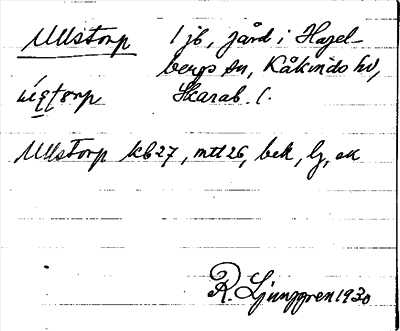 Ullstorp 1 jb, gård i Hagel-
bergs sn, Kåkinds hd,
Skarab. l.
Ullstorp kb27, mtl26, bek, lj, ek
R. Ljunggren 1930